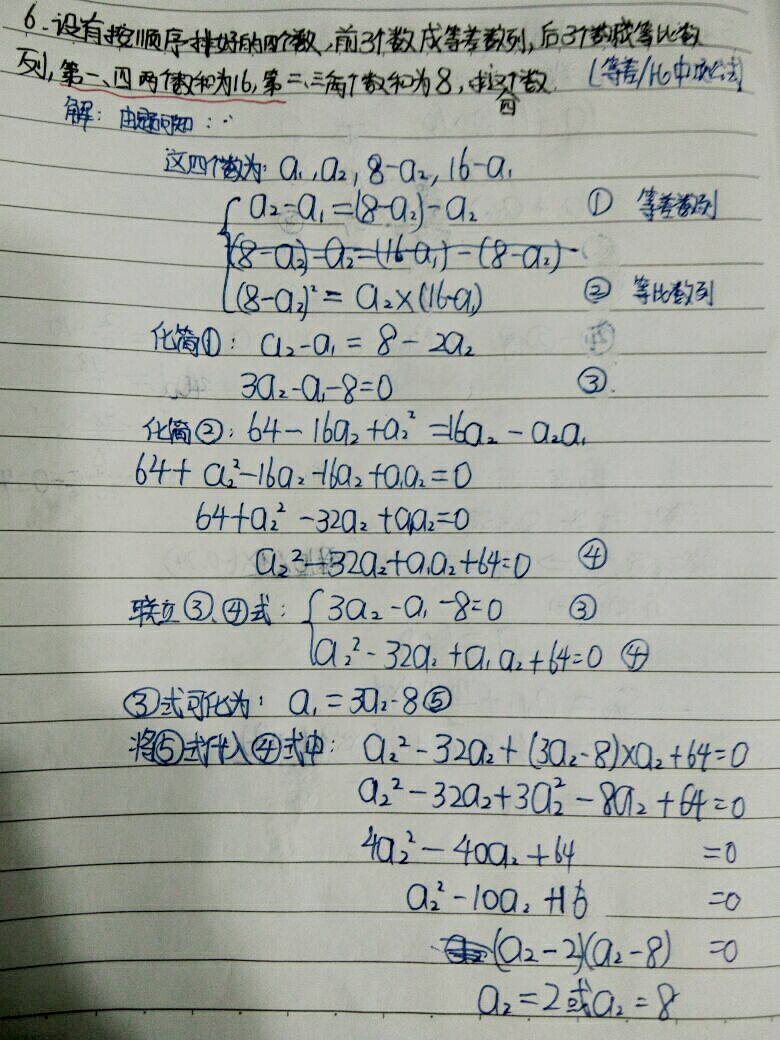 6.设有按顺序排好的四个数,前3个数成等差数列,后3个数成等比数
列,第一、四两个数和为16,第二、三两个数和为8,求这四个数. (等差/比中项公式)
解:由题可知:∵
这四个数为:a₁,a₂,8-a₂,16-a₁
a₂-a₁=(8-a₂)-a₂ ① 等差数列
(8-a₂)-a₂=(16-a₁)-(8-a₂)
(8-a₂)²=a₂×(16-a₁) ② 等比数列
化简①: a₂-a₁=8-2a₂
3a₂-a₁-8=0 ③.
化简②:64-16a₂+a₂²=16a₂-a₂a₁
64+a₂²-16a₂-16a₂+a₁a₂=0
64+a₂²-32a₂+a₁a₂=0
a₂²-32a₂+a₁a₂+64=0 ④
联立③、④式: 3a₂-a₁-8=0 ③
a₂²-32a₂+a₁a₂+64=0 ④
③式可化为: a₁=3a₂-8⑤
将⑤式代入④式中: a₂²-32a₂+(3a₂-8)×a₂+64=0
a₂²-32a₂+3a₂²-8a₂+64=0
4a₂²-40a₂+64 =0
a₂²-10a₂+16 =0
(a₂-2)(a₂-8) =0
a₂=2或a₂=8